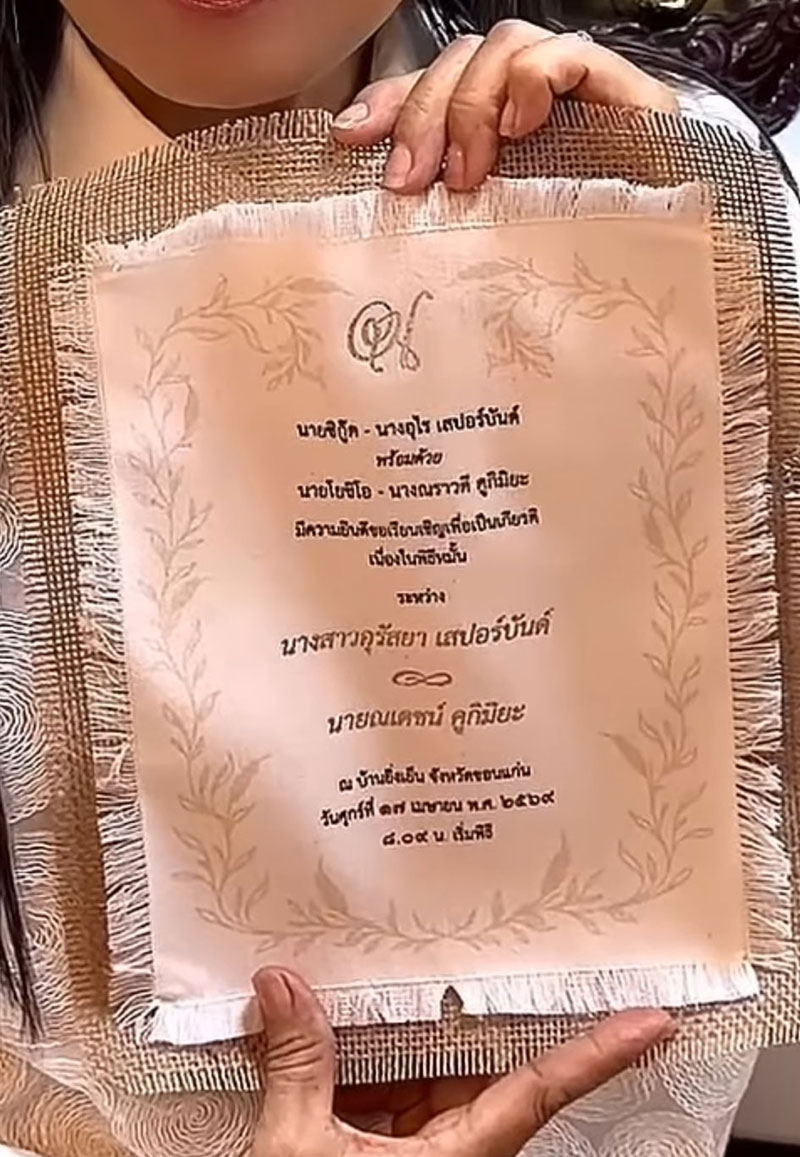 นายซิกู๊ด - นางอุไร เสปอร์บันด์
พร้อมด้วย
นายโยชิโอ - นางณราวดี คูกิมิยะ
มีความยินดีขอเรียนเชิญเพื่อเป็นเกียรติ
เนื่องในพิธีหมั้น
ระหว่าง
นางสาวอุรัสยา เสปอร์บันด์
นายณเดชน์ คูกิมิยะ
ณ บ้านยิ่งเย็น จังหวัดขอนแก่น
วันศุกร์ที่ ๑๗ เมษายน พ.ศ. ๒๕๖๙
๘.๐๙ น. เริ่มพิธี